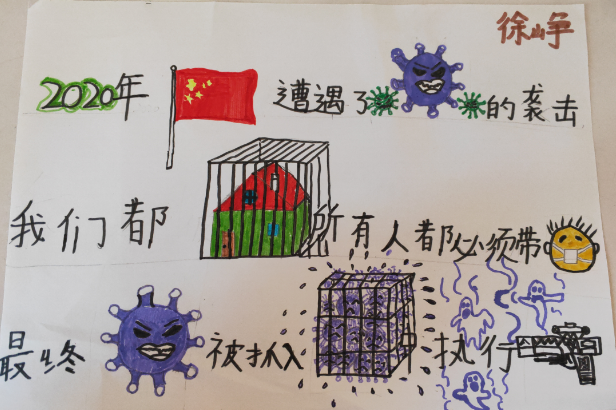 徐峥
2020年 遭遇了 的袭击
我们都 所有人都必须带
最终 被抓入 执行